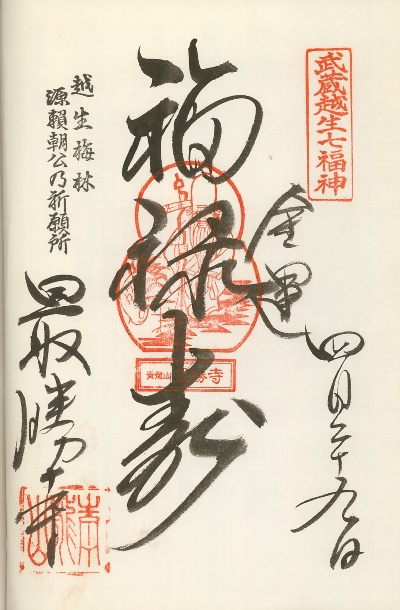 武蔵越生七福神
金運
四月二十九日
福禄寿
越生梅林
源頼朝公乃祈願所
最勝寺